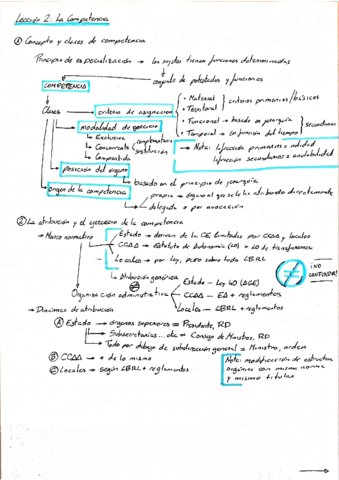 Lección 2: La Competencia
① Concepto y clases de competencia
Principio de especialización → los sujetos tienen funciones determinadas
conjunto de potestades y funciones
COMPETENCIA
Clases
criterio de asignación
• Material
• Territorial
criterios primarios/básicos
• Funcional → basado en jerarquía
• Temporal → en función del tiempo
secundarios
modalidad de ejercicio
→ Exclusiva
→ Concurrente
→ Compartida
complementaria
sustitución
→ Nota: Infracción primarios = nulidad
Infracción secundarios = anulabilidad
posición del órgano
origen de la competencia
basado en el principio de jerarquía
propia → órgano al que se le ha atribuido directamente
delegada o por avocación
② La atribución y el ejercicio de la competencia
→ Marco normativo
Estado → derivan de la CE limitados por CCAA y locales
CCAA → Estatuto de Autonomía (LO) + LO de transferencia
Locales → por Ley, pero sobre todo LBRL
→ Atribución genérica
≠
Organización administrativa
Estado → Ley 40 (AGE)
CCAA → EA + reglamentos
Locales → LBRL + reglamentos
¡NO
CONFUNDIR!
→ Dinámica de atribución
Ⓐ Estado → órganos superiores = Presidente, RD
→ Subsecretarías... etc = Consejo de Ministros, RD
→ Todo por debajo de subdirección general = Ministro, orden
Ⓑ CCAA → + de lo mismo
Ⓒ Locales → según LBRL + reglamentos
Nota: modificación de estructura
orgánica con misma norma
y mismo titular